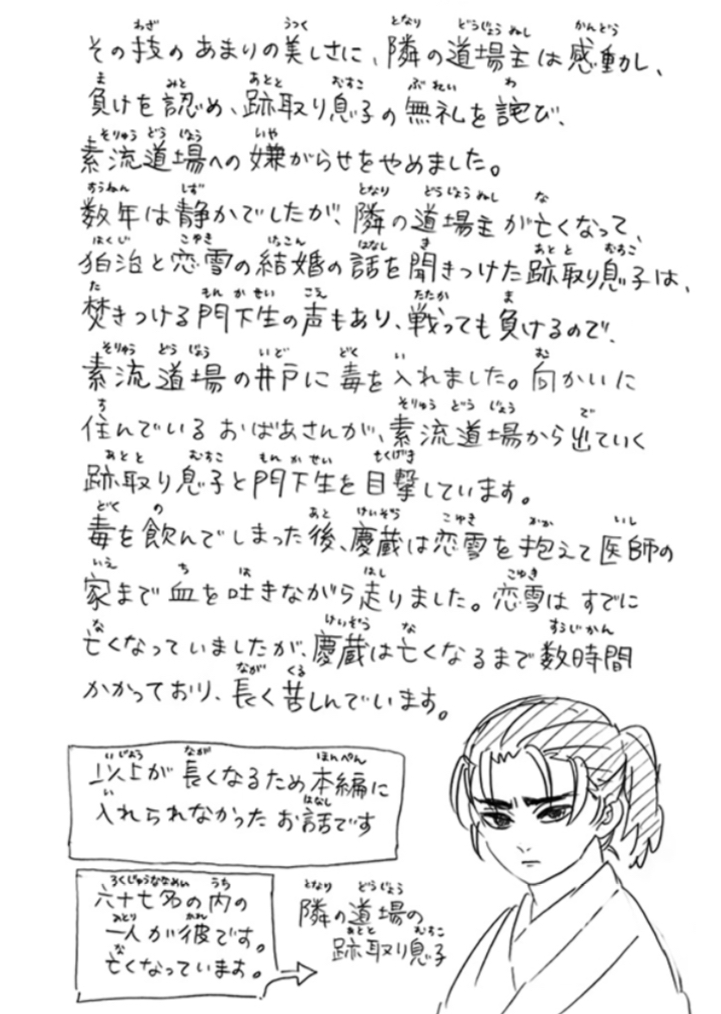 その技のあまりの美しさに、隣の道場主は感動し、
負けを認め、跡取り息子の無礼を詫び、
素流道場への嫌がらせをやめました。
数年は静かでしたが、隣の道場主が亡くなって、
狛治と恋雪の結婚の話を聞きつけた跡取り息子は、
焚きつける門下生の声もあり、戦っても負けるので、
素流道場の井戸に毒を入れました。向かいに
住んでいるおばあさんが、素流道場から出ていく
跡取り息子と門下生を目撃しています。
毒を飲んでしまった後、慶蔵は恋雪を抱えて医師の
家まで血を吐きながら走りました。恋雪はすでに
亡くなっていましたが、慶蔵は亡くなるまで数時間
かかっており、長く苦しんでいます。
以上が長くなるため本編に
入れられなかったお話です
六十七名の内の
一人が彼です。
亡くなっています。
隣の道場の
跡取り息子